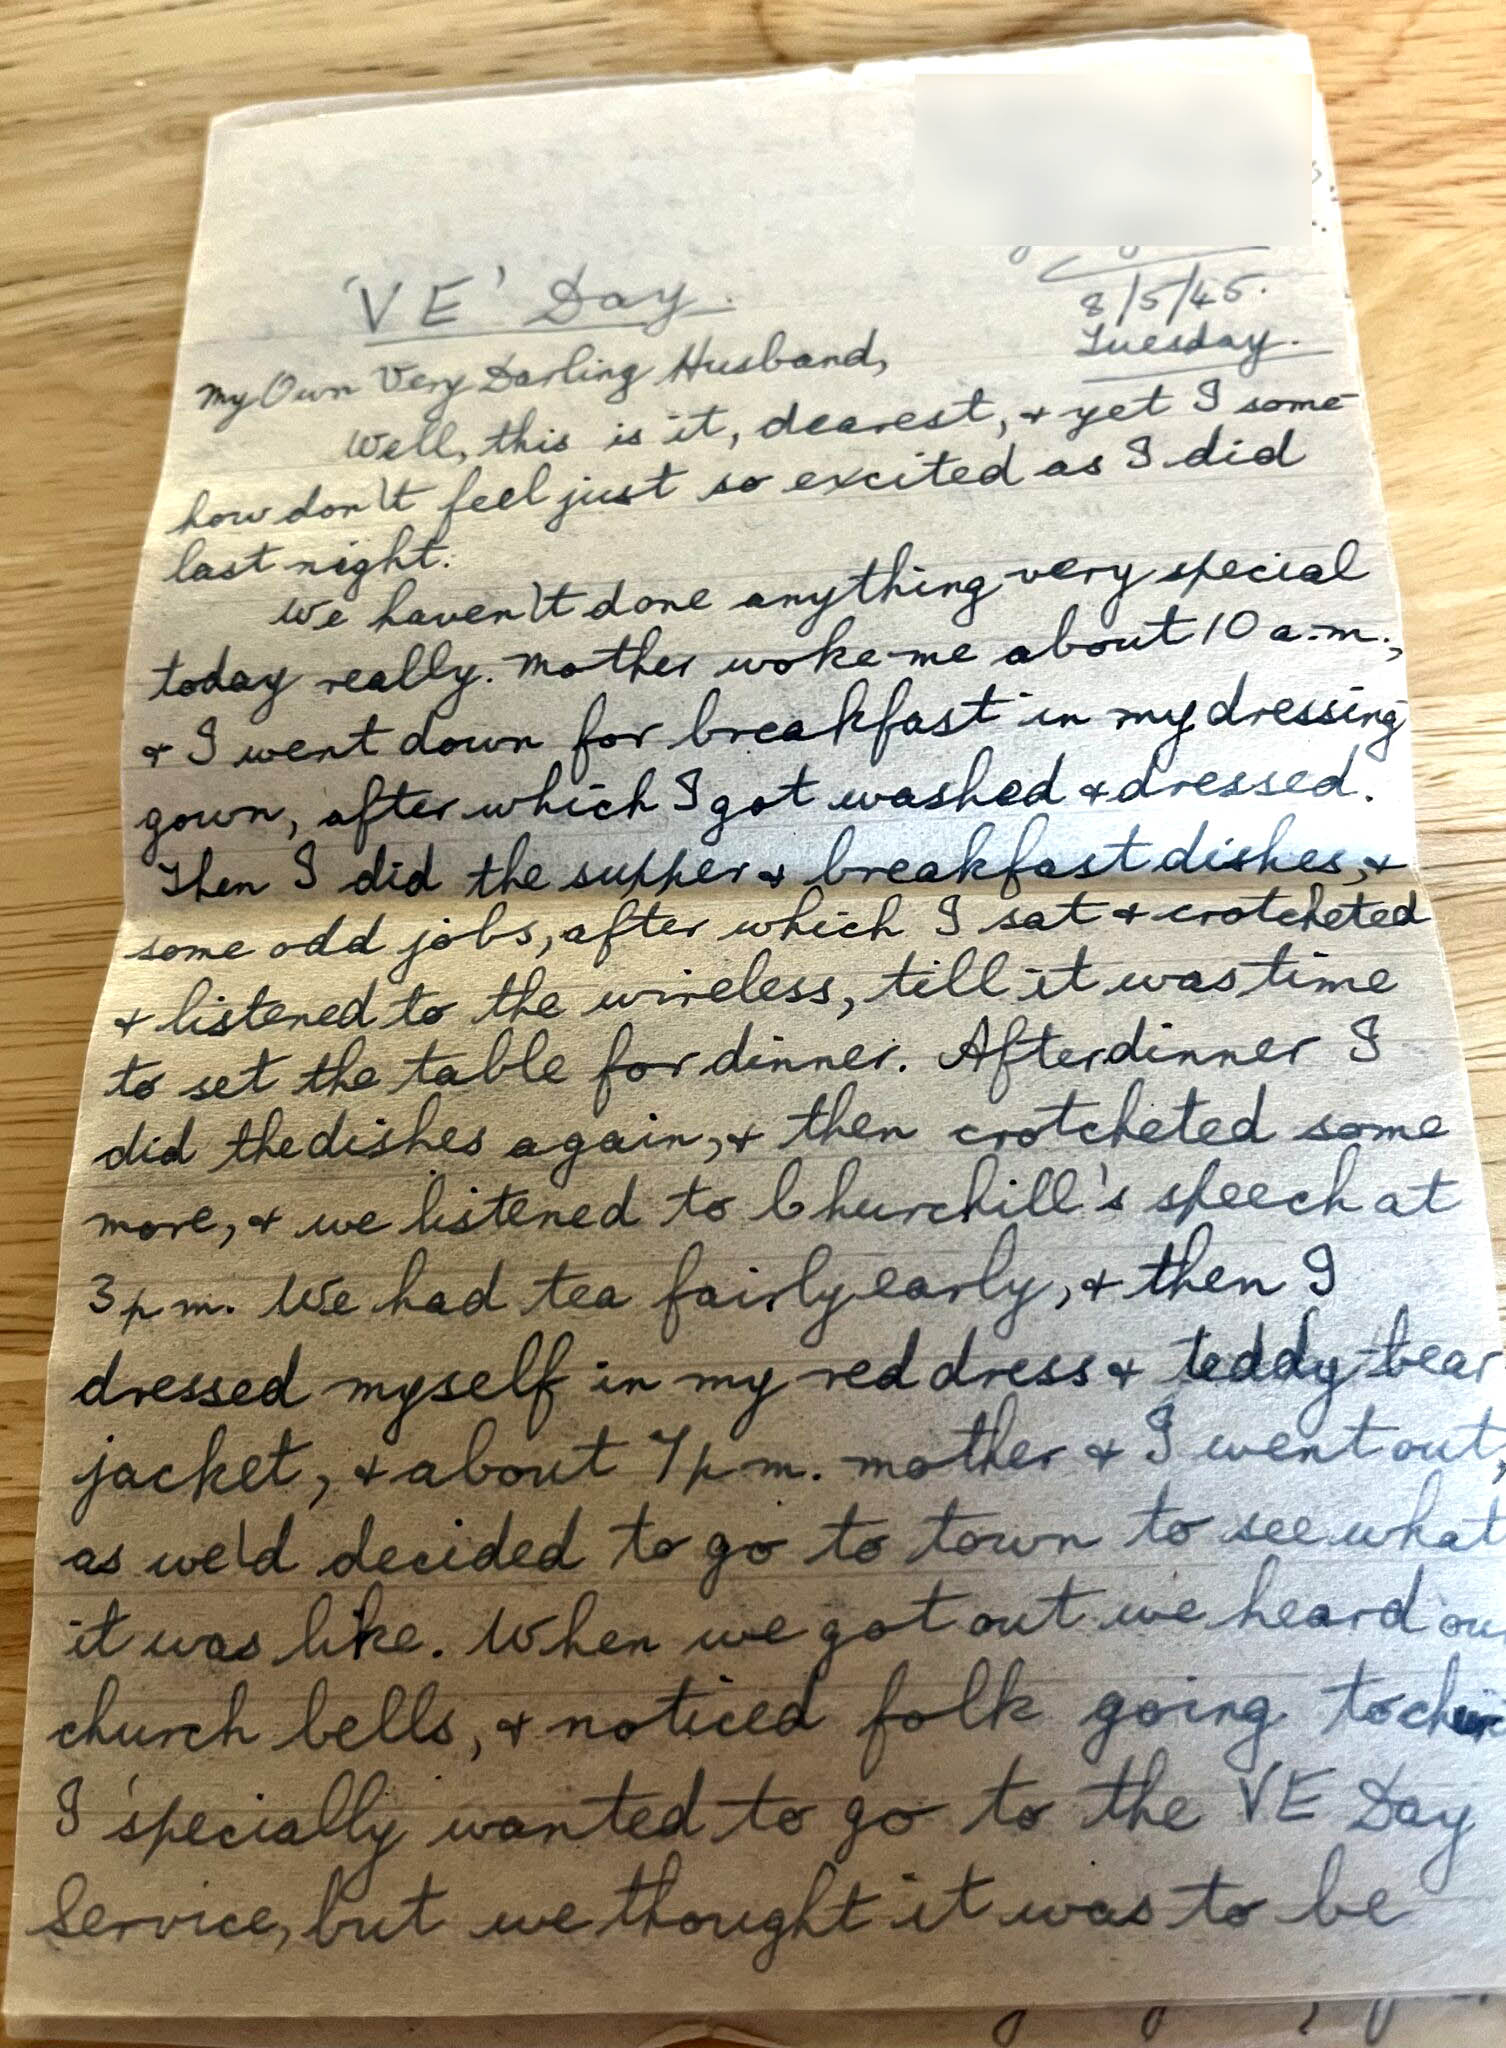 'VE' Day.
8/5/45.
Tuesday.
My Own Very Darling Husband,
Well, this is it, dearest, & yet I some-
how don't feel just so excited as I did
last night.
We haven't done anything very special
today really. Mother woke me about 10 a.m.,
& I went down for breakfast in my dressing
gown, after which I got washed & dressed.
Then I did the supper & breakfast dishes, &
some odd jobs, after which I sat & crotcheted
& listened to the wireless, till it was time
to set the table for dinner. After dinner I
did the dishes again, & then crotcheted some
more, & we listened to Churchill's speech at
3 p.m. We had tea fairly early, & then I
dressed myself in my red dress & teddy-bear
jacket, & about 7 p.m. mother & I went out,
as we'd decided to go to town to see what
it was like. When we got out we heard
church bells, & noticed folk going to
I 'specially wanted to go to the VE Day
Service, but we thought it was to be